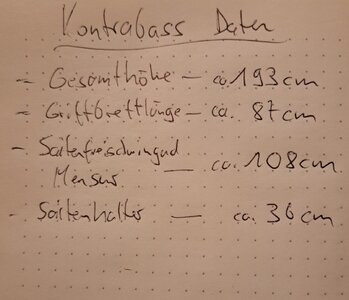 Kontrabass Daten
- Gesamthöhe - ca. 193cm
- Griffbrettlänge - ca. 87cm
- Saitenfreischwingend
Mensur — ca. 108cm
- Saitenhalter — ca. 36cm